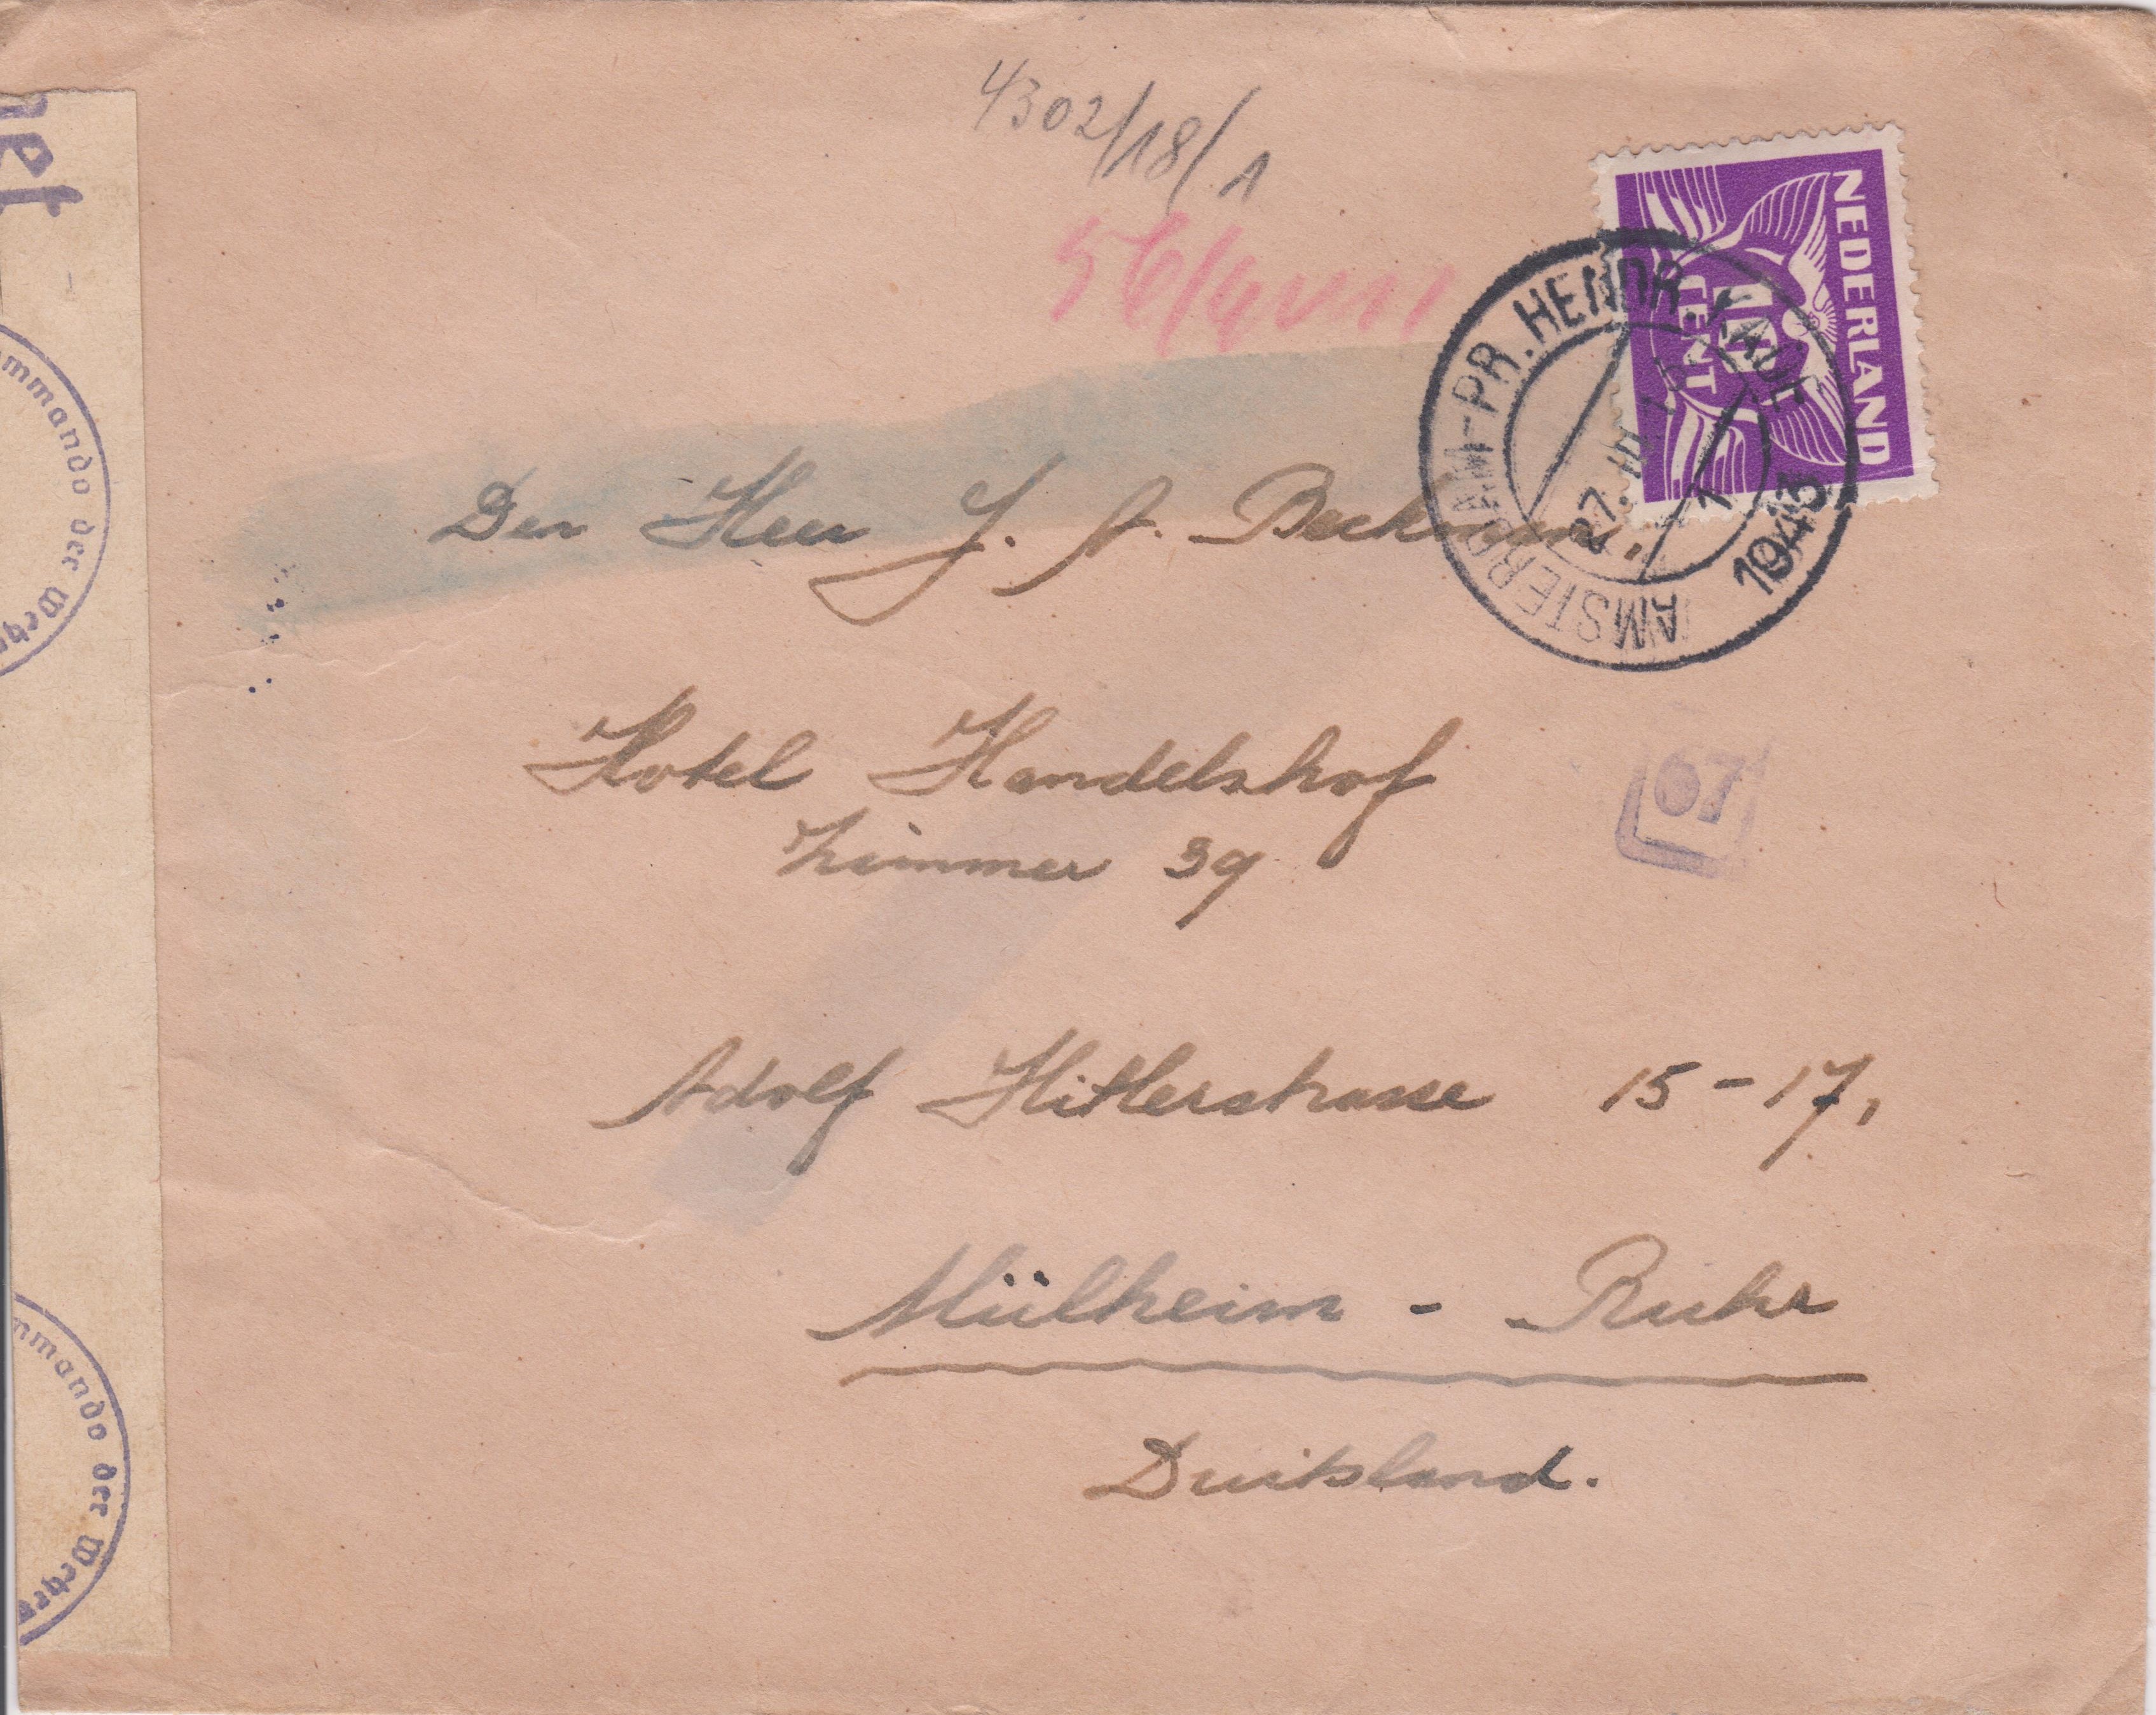 4302/18/1
NEDERLAND
CENT
AMSTERDAM-PR. HENDR. KADE
27.III
1943
Den Heer J. A. Beckman,
Hotel Handelshof
Zimmer 39
67
Adolf Hitlerstrasse 15-17,
Mülheim - Ruhr
Duitsland.
net
mmando der Wehr
mmando der Wehrm